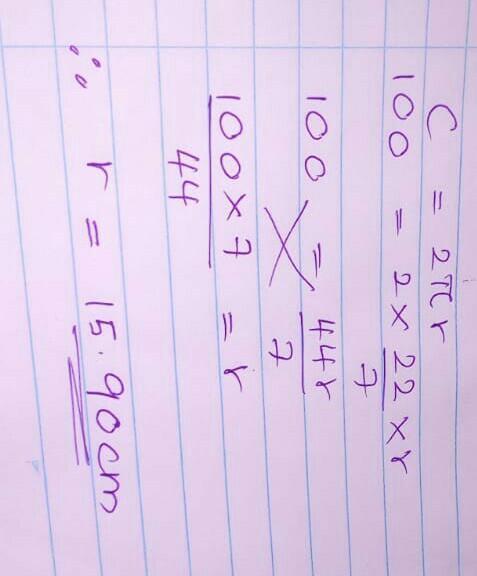 C = 2πr
100 = 2 × 22/7 × r
100 = 44r/7
100 × 7/44 = r
∴ r = 15.90cm